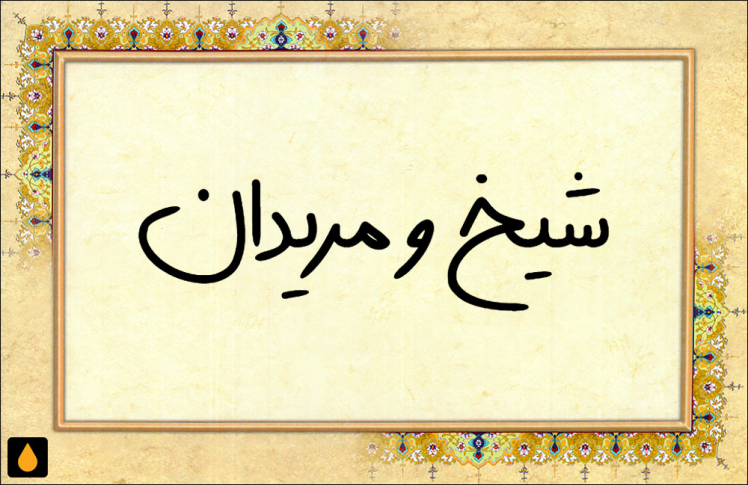 شیخ و مریدان